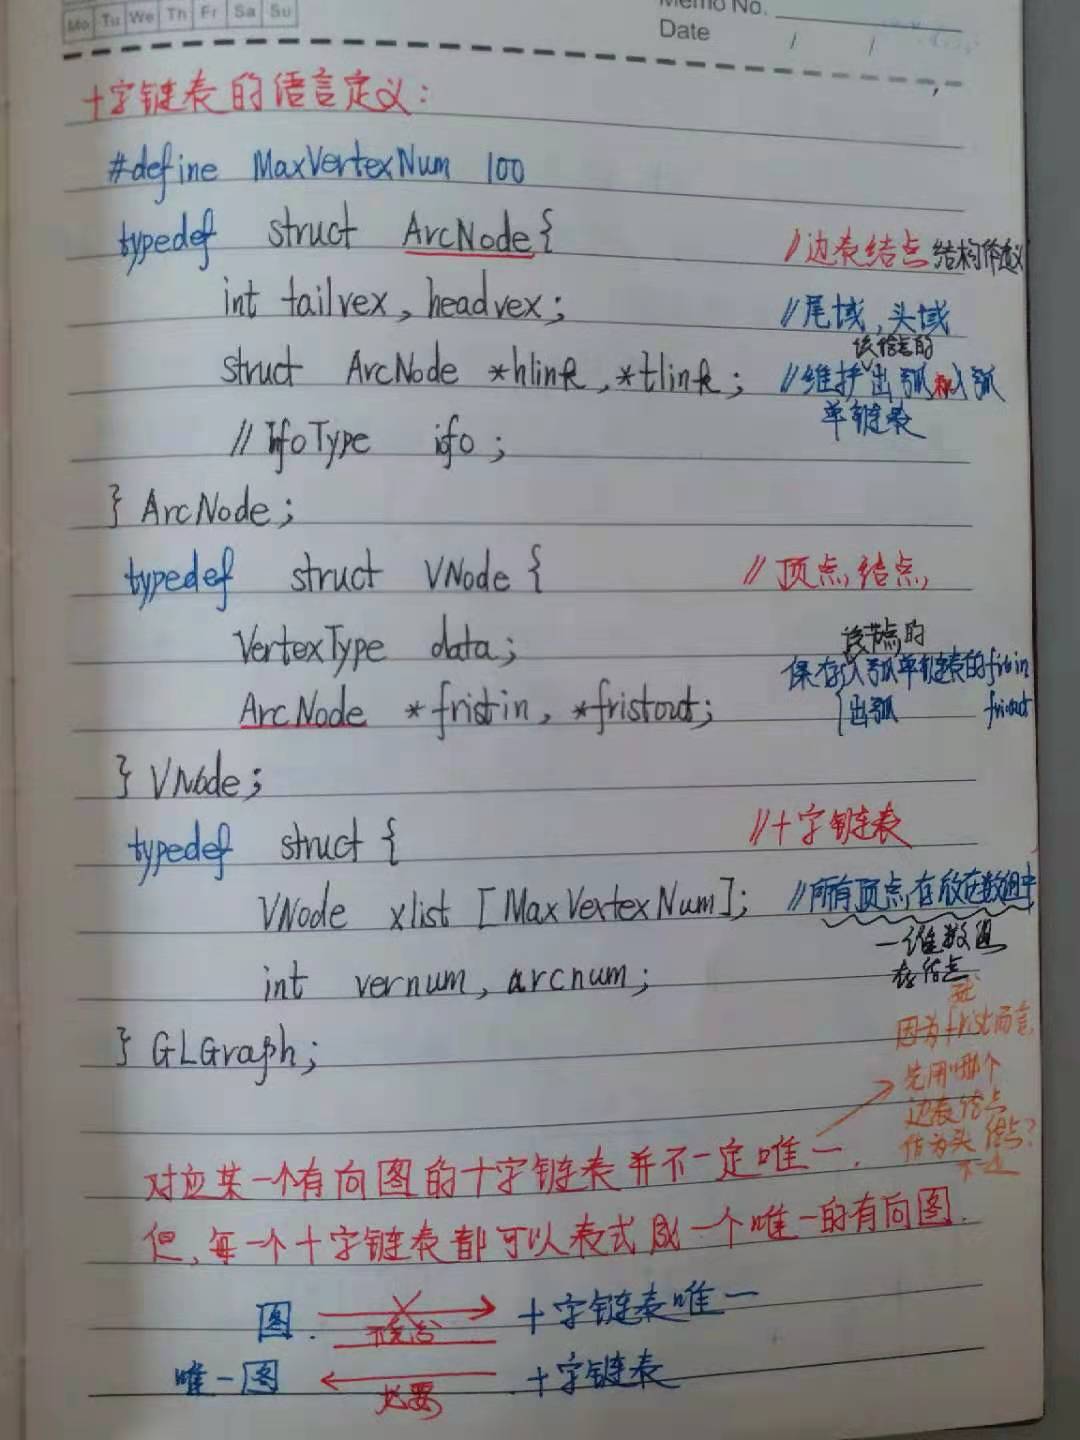 Mo Tu We Th Fr Sa Su
Memo No.
Date / /
十字链表的语言定义:
#define MaxVertexNum 100
typedef struct ArcNode{ //边表结点 结构体定义
int tailvex, headvex; //尾域,头域
该结点的
struct ArcNode *hlink, *tlink; //维护出弧和入弧
单链表
// IfoType ifo;
} ArcNode;
typedef struct VNode{ //顶点,结点,
该节点的
VertexType data; 保存入弧单链表的fristin
ArcNode *fristin, *fristout; 出弧 fristout
} VNode;
typedef struct{ //十字链表
VNode xlist [MaxVertexNum]; //所有顶点,存放在数组中
一维数组
存结点
int vernum, arcnum;
} GLGraph;
因为frist而言
先用哪个
边表结点
作为头结点?
不一定
对应某一个有向图的十字链表并不一定唯一.
但,每一个十字链表都可以表式成一个唯一的有向图.
图. 不充分 十字链表唯一
唯一图 必要 十字链表